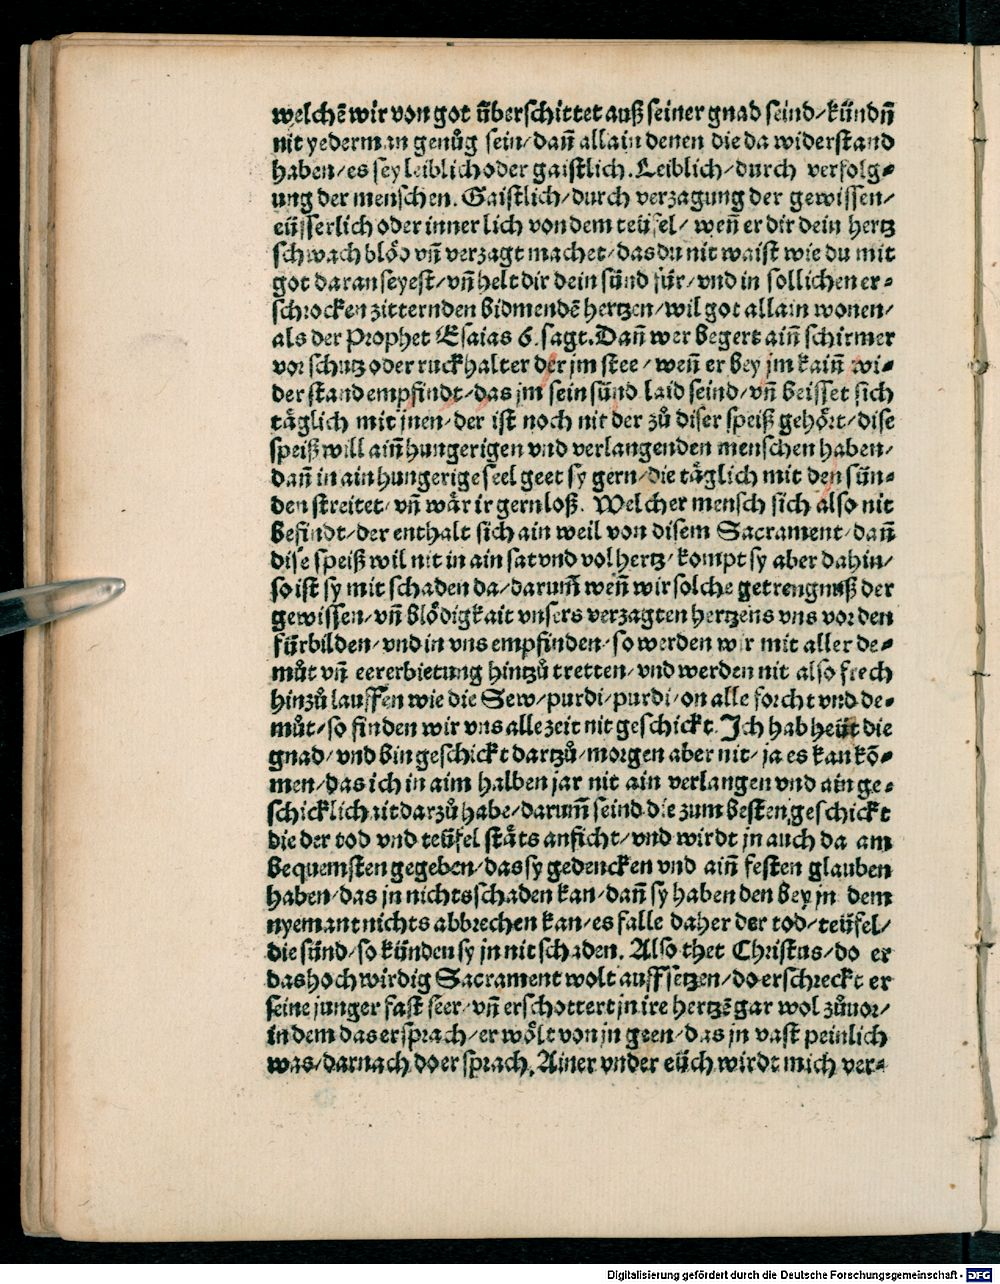 welchē wir von got ūberschittet auß seiner gnad seind/kündn̄
nit yederman genůg sein/dan̄ allain denen die da widerstand
haben/es sey leiblich oder gaistlich. Leiblich/durch verfolg⸗
ung der menschen. Gaistlich/durch verzagung der gewissen/
eüsserlich oder innerlich von dem teüfel/wen̄ er dir dein hertz
schwach blöd vn̄ verzagt machet/das du nit waist wie du mit
got daran seyest/vn̄ helt dir dein sünd für/vnd in sollichen er⸗
schrocken zitternden bidmendē hertzen/wil got allain wonen/
als der Prophet Esaias 6. sagt. Dan̄ wer begert ain̄ schirmer
vor schutz oder ruckhalter der jm stee/wen̄ er bey jm kain̄ wi⸗
derstand empfindt/das jm sein sünd laid seind/vn̄ beisset sich
täglich mit jnen/der ist noch nit der zů diser speiß gehört/dise
speiß will ain̄ hungerigen vnd verlangenden menschen haben/
dan̄ in ain hungerige seel geet sy gern/die täglich mit den sün⸗
den streitet/vn̄ wär ir gern loß. Welcher mensch sich also nit
befindt/der enthalt sich ain weil von disem Sacrament/dan̄
dise speiß wil nit in ain sat vnd vol hertz/kompt sy aber dahin/
so ist sy mit schaden da/darum̄ wen̄ wir solche getrengnuß der
gewissen/vn̄ blödigkait vnsers verzagten hertzens vns vor den
fürbilden/vnd in vns empfinden/so werden wir mit aller de⸗
můt vn̄ eererbietung hintzů tretten/vnd werden nit also frech
hinzů lauffen wie die Sew/purdi/purdi/on alle forcht vnd de⸗
můt/so finden wir vns alle zeit nit geschickt. Ich hab heüt die
gnad/vnd bin geschickt dartzů/morgen aber nit/ja es kan kō⸗
men/das ich in aim halben jar nit ain verlangen vnd ain ge⸗
schicklichait darzů habe/darum̄ seind die zum besten geschickt
die der tod vnd teüfel stäts anficht/vnd wirdt jn auch da am
bequemsten gegeben/das sy gedencken vnd ain̄ festen glauben
haben/das jn nichts schaden kan/dan̄ sy haben den bey jn dem
nyemant nichts abbrechen kan/es falle daher der tod/teüfel/
die sünd/so künden sy jn nit schaden. Also thet Christus/do er
das hochwirdig Sacrament wolt auffsetzen/do erschreckt er
seine junger fast seer/vn̄ erschottert jn ire hertzē gar wol zůuor/
in dem das er sprach/er wölt von jn geen/das jn vast peinlich
was/darnach do er sprach. Ainer vnder eüch wirdt mich ver⸗
Digitalisierung gefördert durch die Deutsche Forschungsgemeinschaft - DFG